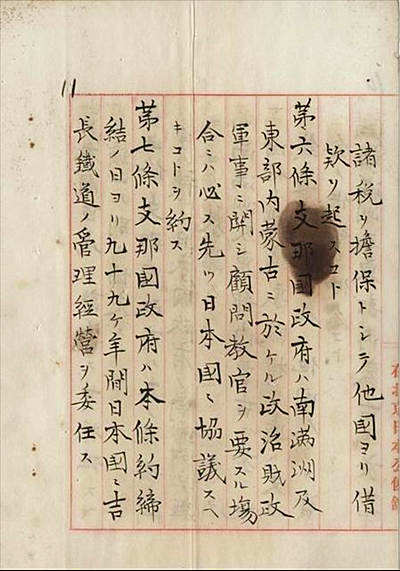 諸税ヲ擔保トシテ他國ヨリ借
款ヲ起スコト
第六條支那國政府ハ南満洲及
東部内蒙古ニ於ケル政治財政
軍事ニ関シ顧問教官ヲ要スル塲
合ニハ必ス先ツ日本國ニ協議スヘ
キコトヲ約ス
第七條支那國政府ハ本條約締
結ノ日ヨリ九十九ケ年間日本國ニ吉
長鐵道ノ管理經營ヲ委任ス